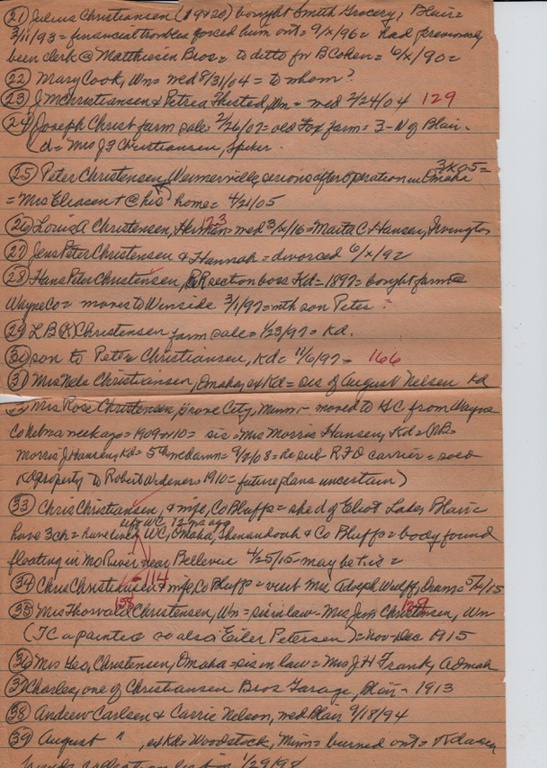 (21) Julius Christiansen (19420) bought Smith Grocery, Blair =
3/11/93 = financial troubles forced him out = 9/x/96 = had previously
been clerk @ Matthiesen Bros = to ditto for B Cohen = 6/x/90 =
(22) Mary Cook, Wn = wed 8/31/04 = to whom?
(23) J M Christiansen & Petrea Thested, Wn = wed 2/24/04 129
(24) Joseph Christ farm sale = 2/26/07 = old Fox farm = 3-N of Blair -
(d = Mrs J F Christiansen, Spiker.
(25) Peter Christensen, Weimerville, serious after operation in Omaha 3/x/05 =
= Mrs Eleasent @ his home = 4/21/05
(26) Louis A Christensen, Herman = wed 3/x/16 = Marta C Hansen, Irvington
123
(27) Jens Peter Christiansen & Hannah = divorced 6/x/92
(28) Hans Peter Christensen, RR section boss Kd = 1897 = bought farm @
Wayne Co = moves to Winside 3/1/97 = mth son Peter ?
(29) L B Christensen farm sale = 1/23/97 = Kd.
(30) son to Peter Christiansen, Kd = 11/6/97 = 166
(31) Mrs Nels Christiansen, Omaha, ex Kd = sis of August Nelsen Kd
Mrs Rose Christensen, Grove City, Minn - moved to GC from Wayne
Co Nebr a week ago = 1909 or 10 = sis = Mrs Morris Hansen, Kd =
Morris J Hansen, Kd = 5th wed anns = 9/2/08 = he sub RFD carrier = sold
Kd property to Robert Wardener = 1910 = future plans uncertain)
(33) Chris Christensen, & wife, Co Bluffs = she d of Eliot Lake, Blair =
left WC 12 ms ago
have 3 ch = have lived WC, Omaha, Shenandoah & Co Bluffs = body found
floating in Mo River near Bellevue 4/25/15 may be his =
(34) Chris Christensen & wife, Co Bluffs = visit Mrs Adolph Wulff, Orum = 5/2/15
114
(35) Mrs Thorvald Christensen, Wn = sis in law - Mrs Jens Christensen, Wn
158 129
(TC a painter so also Eiler Petersen) = Nov-Dec 1915
(36) Mrs Geo, Christensen, Omaha = sis in law = Mrs J H Frank, Admah
(37) Charles, one of Christiansen Bros Garage, Blair - 1913
(38) Andrew Carlsen & Carrie Nelson, wed Blair 9/18/94
(39) August " , ex Kd = Woodstock, Minn = burned out =
1/29/98